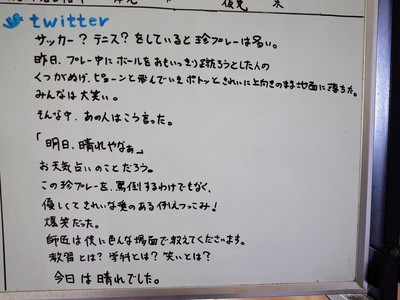 twitter
サッカー？テニス？をしていると珍プレーは多い。
昨日、プレー中にボールをおもいっきり打ろうとした人の
くつがぬげ、ピューンと飛んでいきポトッときれいに上向きのまま地面に落ちた。
みんなは大笑い。
そんな中、あの人はこう言った。
「明日、晴れやなぁ」
お天気占いのことだろう。
この珍プレーを、罵倒するわけでもなく、
優しくてきれいな愛のある例えつっこみ！
爆笑だった。
師匠は僕に色んな場面で教えてくださいます。
教習とは？学科とは？笑いとは？
今日は晴れでした。